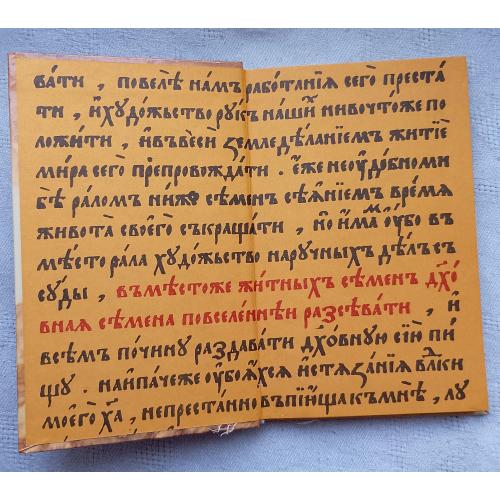 вати , повелѣ намъ работанїя сего̀ преста́
ти , и҆ худо́жьство рукъ на́шихъ ниво́чтоже по
ложи́ти , и҆ въ ве́си земледѣ́ланїемъ житїѐ
ми́ра сего̀ препровожда́ти . е҆́же неоу҆до́бно ми
бѣ̀ ра́ломъ нижѐ сѣ́менъ сѣ́янїемъ вре́мя
живота̀ своего̀ съкраща́ти , но и҆́мамъ оу҆́бо въ
мѣ́сто ра́ла худо́жьство нару́чныхъ дѣ́лъ съ
су́ды , въ мѣ́стоже жи́тныхъ сѣ́менъ дх҃о́
вная сѣ́мена повселе́ннѣй разсѣва́ти , и҆
всѣ́мъ по чи́ну раздава́ти дх҃о́вную сїю̀ пи́
щу . наипа́чеже оу҆боя́хся и҆стяза́нїя влⷣки
моего̀ хⷭ҇а̀ , непреста́нно въпїю́ща къ мнѣ̀ , лу